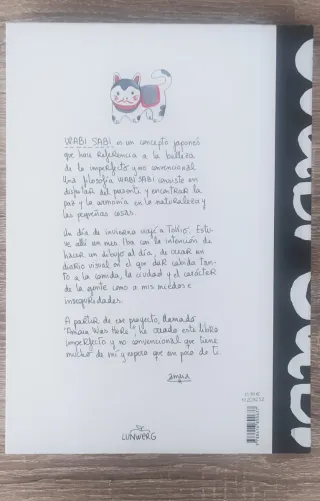 WABI SABI es un concepto japonés
que hace referencia a la belleza
de lo imperfecto y no convencional
Una filosofía WABI SABI consiste en
disfrutar del presente y encontrar la
paz y la armonía en la naturaleza y
las pequeñas cosas.
Un día de invierno viajé a Tokio. Estu-
ve allí un mes. Iba con la intención de
hacer un dibujo al día, de crear un
diario visual en el que dar cabida tan-
to a la comida, la ciudad y el carácter
de la gente como a mis miedos e
inseguridades.
A partir de ese proyecto, llamado
"Amaia Was Here", he creado este libro
imperfecto y no convencional que tiene
mucho de mí y espero que un poco de ti.
amaia
LUNWERG